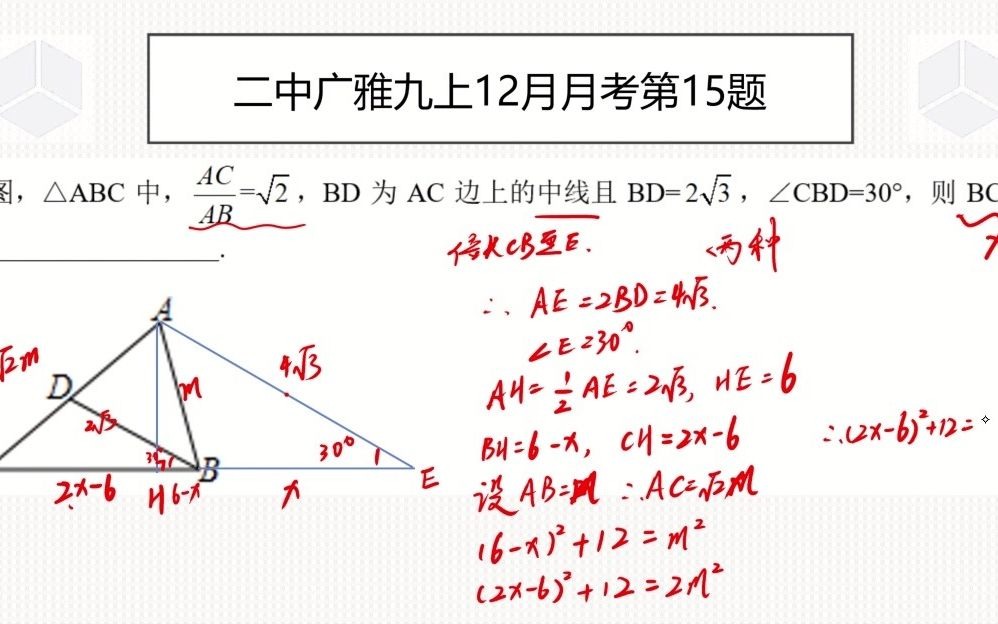 二中广雅九上12月月考第15题
图，△ABC 中，AC/AB=√2，BD 为 AC 边上的中线且 BD=2√3，∠CBD=30°，则 BC
.
倍长CB至E. 两种 x
∴ AE=2BD=4√3.
∠E=30°.
AH=1/2 AE=2√3, HE=6
BH=6-x, CH=2x-6 ∴(2x-6)²+12=
设AB=m ∴AC=√2m
(6-x)²+12=m²
(2x-6)²+12=2m²
A
√2m
4√3
D
m
2√3
30°
30° 1
B
E
2x-6
H
6-x
x